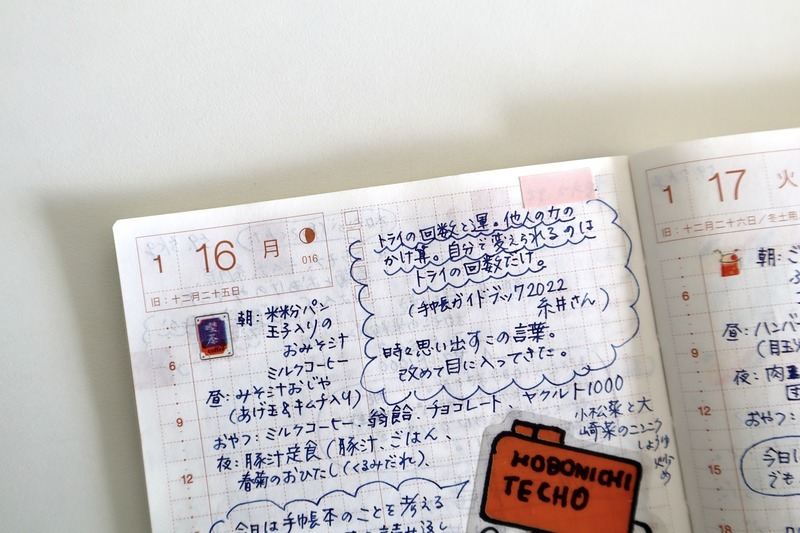 1 16 月
016
旧：十二月二十五日
トライの回数と運。他人の力の
かけ算。自分で変えられるのは
トライの回数だけ。
(手帳ガイドブック2022
糸井さん)
時々思い出すこの言葉。
改めて目に入ってきた。
喫茶
朝：米粉パン
玉子入りの
おみそ汁
ミルクコーヒー
昼：みそ汁おじや
(あげ玉&キムチ入り)
おやつ：ミルクコーヒー、翁飴、チョコレート、ヤクルト1000
夜：豚汁定食(豚汁、ごはん、
春菊のおひたし(くるみだれ)、
小松菜と大
崎菜のニンニク
しょうゆ
炒め
6
9
12
今日は手帳本のことを考える
HOBONICHI
TECHO
1 17 火
旧：十二月二十六日／冬土用
朝：ご
昼：ハンバー
(目玉
夜：肉
おやつ：
今日
でも
6
9
12
15